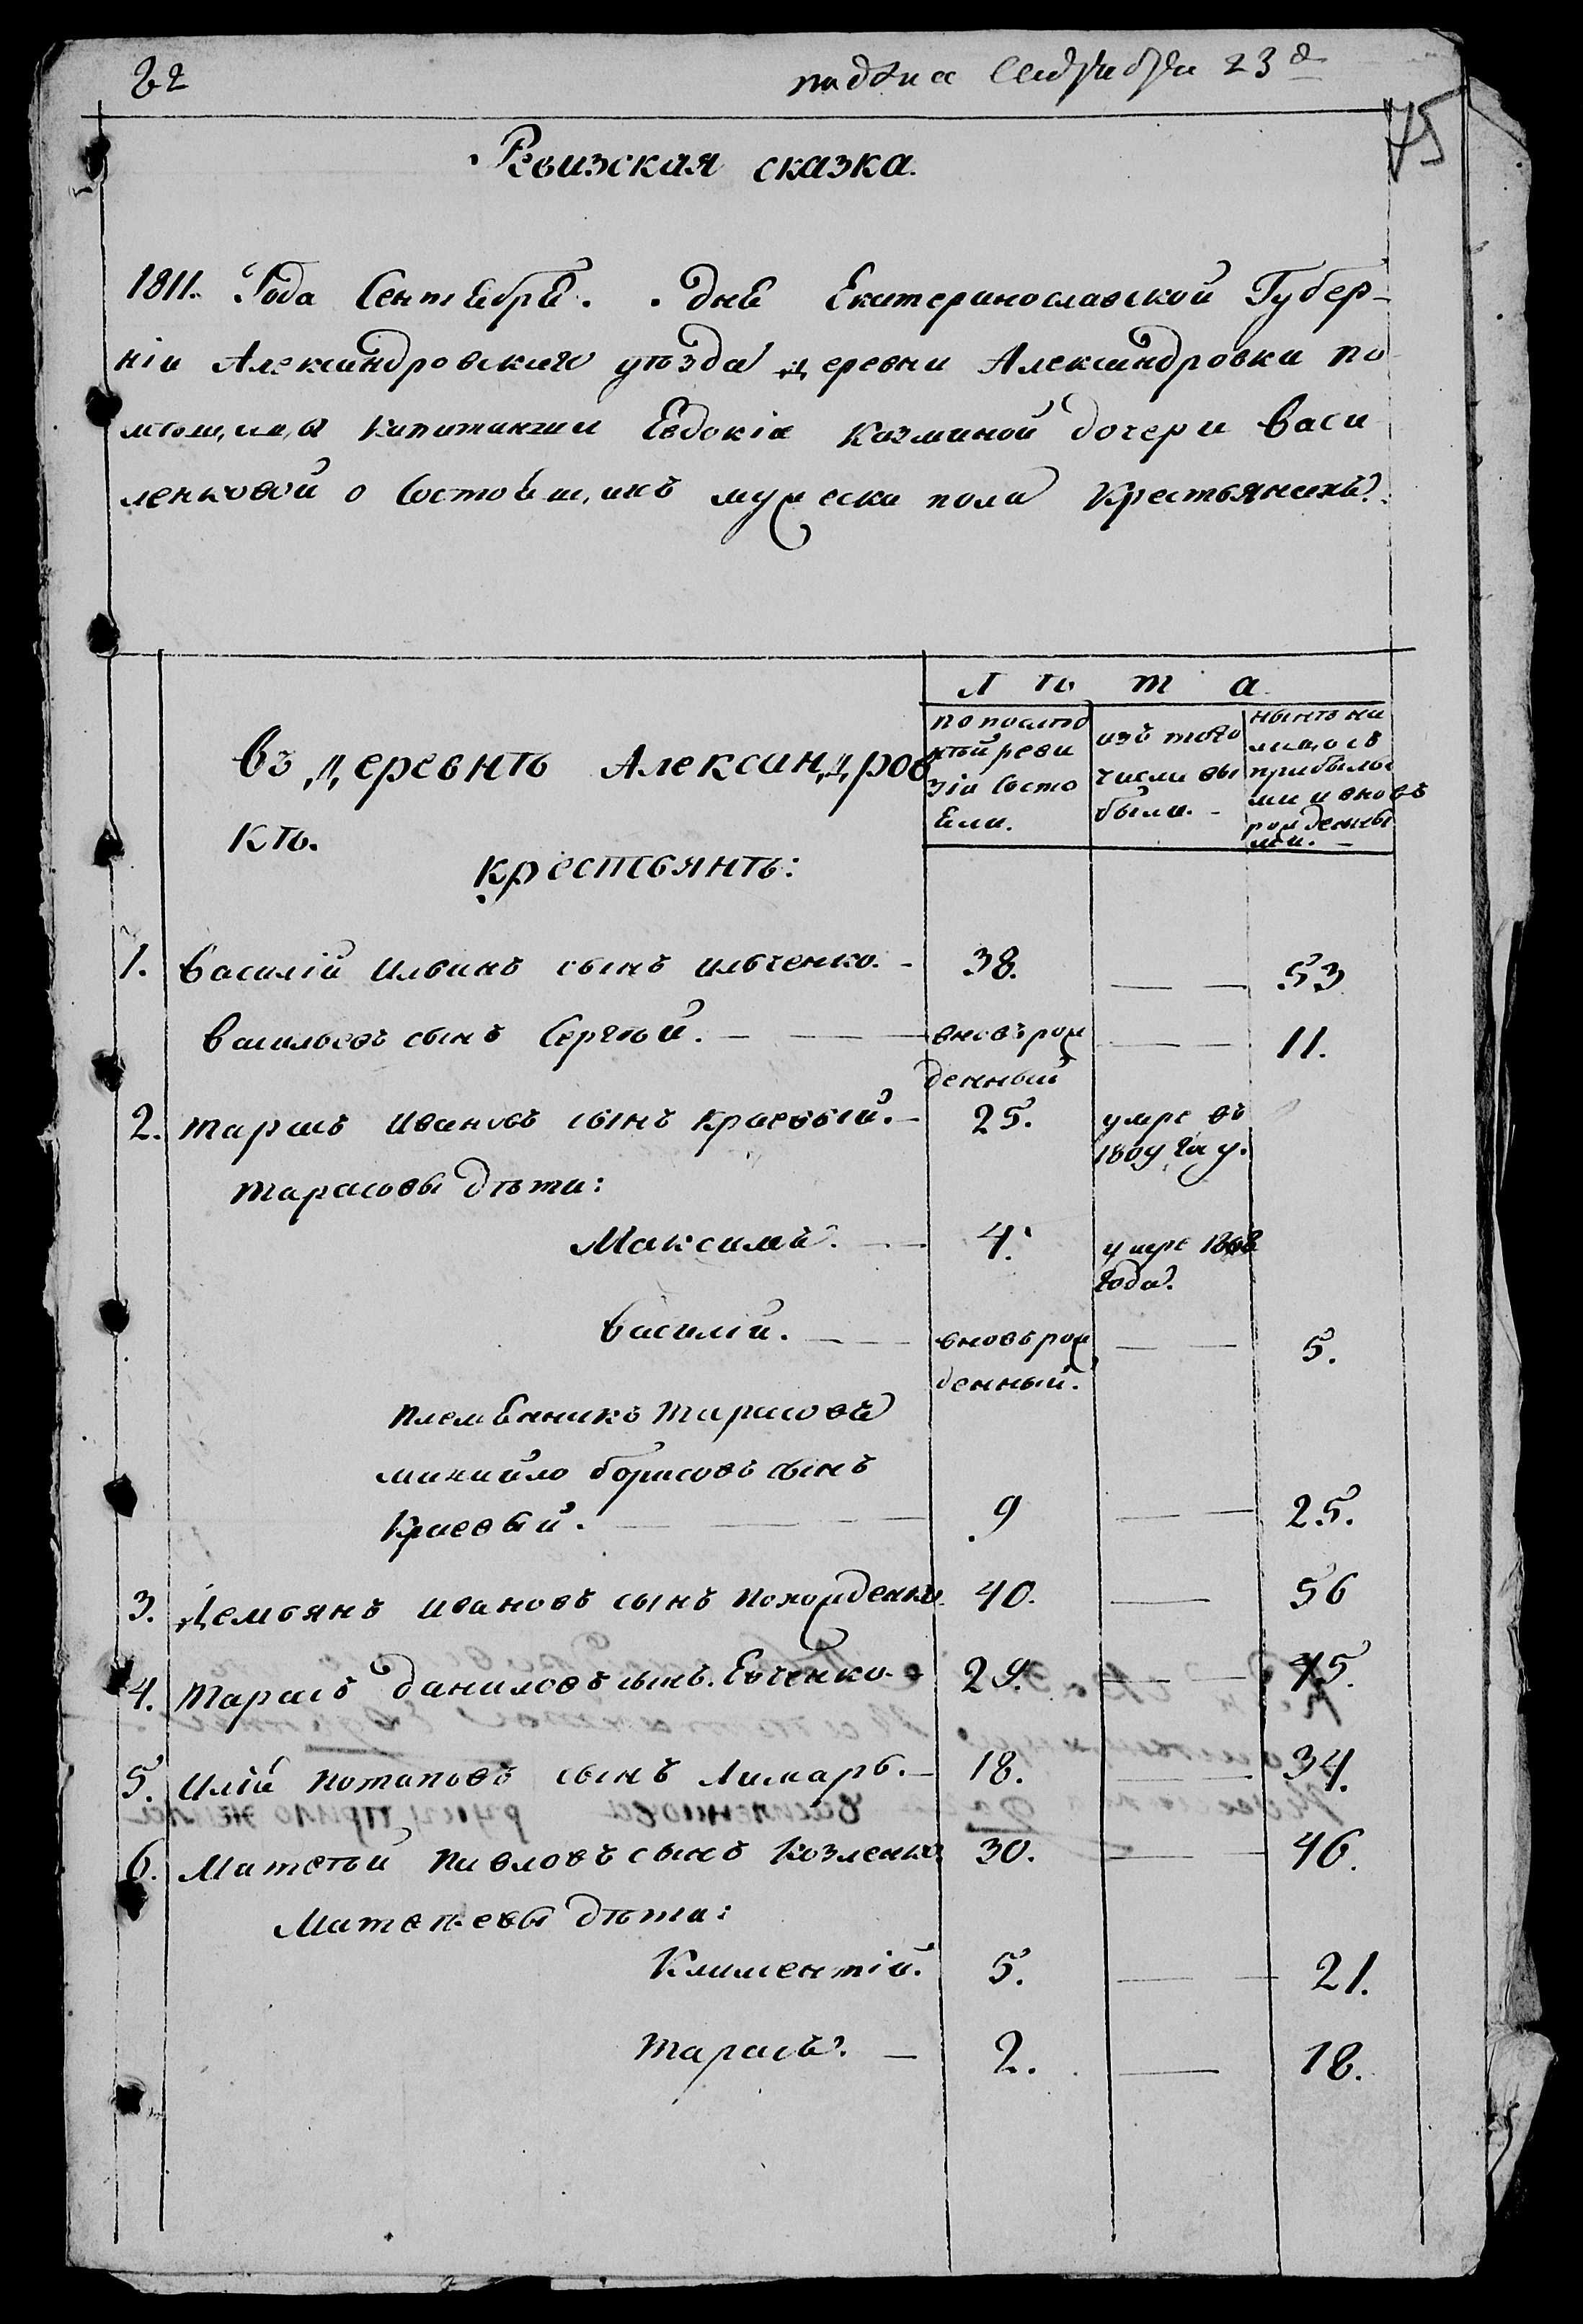 22
подана Сентября 23 д
75
Ревизская сказка.
1811. Года Сентября. . дня Екатеринославской Губер-
ніи Александровскаго уѣзда деревни Александровки по
мѣщицы капитанши Евдокіи Козминой дочери Васи
ленковой о состоящихъ мужеска пола крестьянехъ.
Лѣта
по послѣд
ней реви
зіи состо
яли.
изъ того
числа вы
было.
нынѣ на
лицо съ
прибылы
ми и вновь
рожденны
ми.
Въ деревнѣ Александров
кѣ.
крестьянъ:
1. Василій Ильинъ сынъ Ильченко. 38. — — 53
Васильевъ сынъ Сергѣй. — — вновь рож — — 11.
денный
2. Тарасъ Ивановъ сынъ Краевый. 25. умре въ
1809 году.
Тарасовы дѣти:
Максимъ. — 4. умре 1808
года.
Василій. — — вновь рож — — 5.
денный.
Племянникъ Тарасовъ
Михайло Борисовъ сынъ
Краевый. — — 9 — — 25.
3. Демьянъ Ивановъ сынъ Похожденко. 40. — 56
4. Тарасъ Даниловъ сынъ Евченко. 29. — — 45.
5. Илій Потаповъ сынъ Лимарь. — 18. — — 34.
6. Матвѣй Павловъ сынъ Козленко. 30. — — 46.
Матвѣевы дѣти:
Климентій. 5. — — 21.
Тарасъ. — 2. — 18.